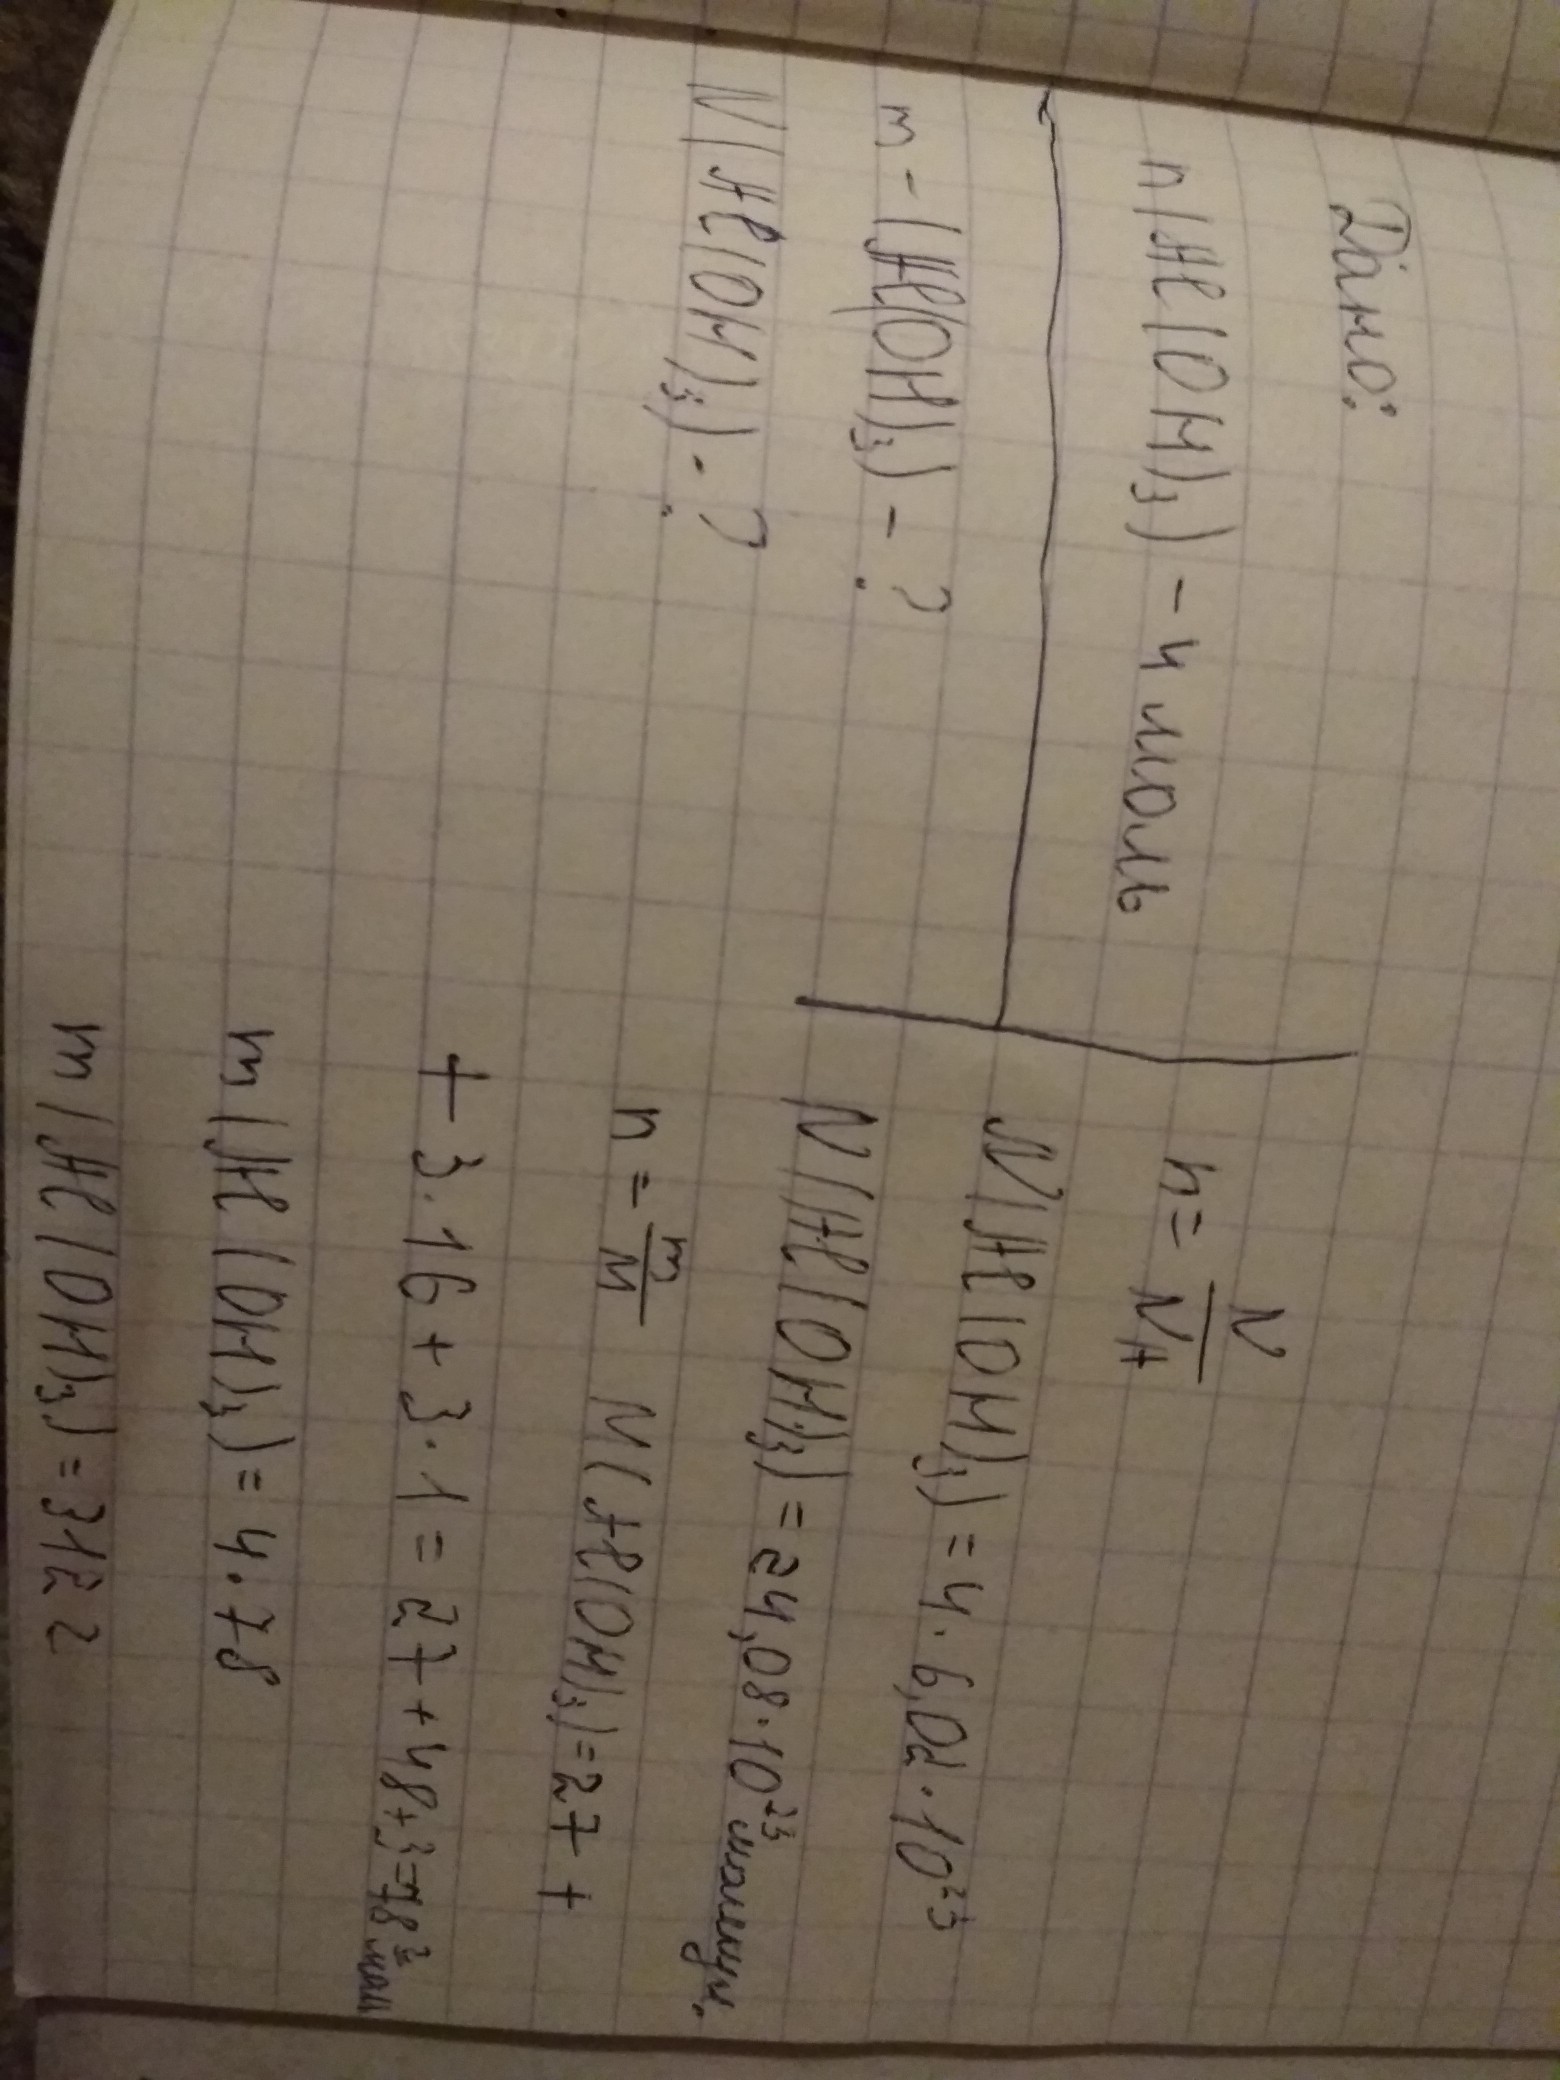 Дано:
n(Al(OH)₃) - 4 моль
m - (Al(OH)₃) - ?
N(Al(OH)₃) - ?
n = N/NA
N(Al(OH)₃) = 4 · 6,02 · 10²³
N(Al(OH)₃) = 24,08 · 10²³ молекул.
n = m/M M(Al(OH)₃) = 27 +
+ 3 · 16 + 3 · 1 = 27 + 48 + 3 = 78 г/моль
m(Al(OH)₃) = 4 · 78
m(Al(OH)₃) = 312 г